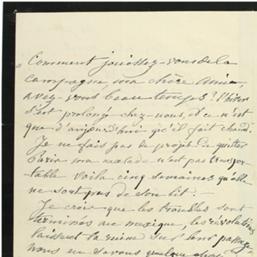 Comment jouissez-vous de la
campagne, ma chère Amie,
avez-vous beau temps? l'hiver
s'est prolongé chez-nous, et ce n'est
que d'aujourd'hui qu'il fait chaud.
Je ne fais pas de projet de quitter
Paris ma malade n'est pas transpor-
table voilà cinq semaines qu'elle
ne sort pas de son lit.
Je crois que les troubles sont
terminés au mexique, les révolutions
laissent la ruine sur leur passage
nous ne savons quelque chose